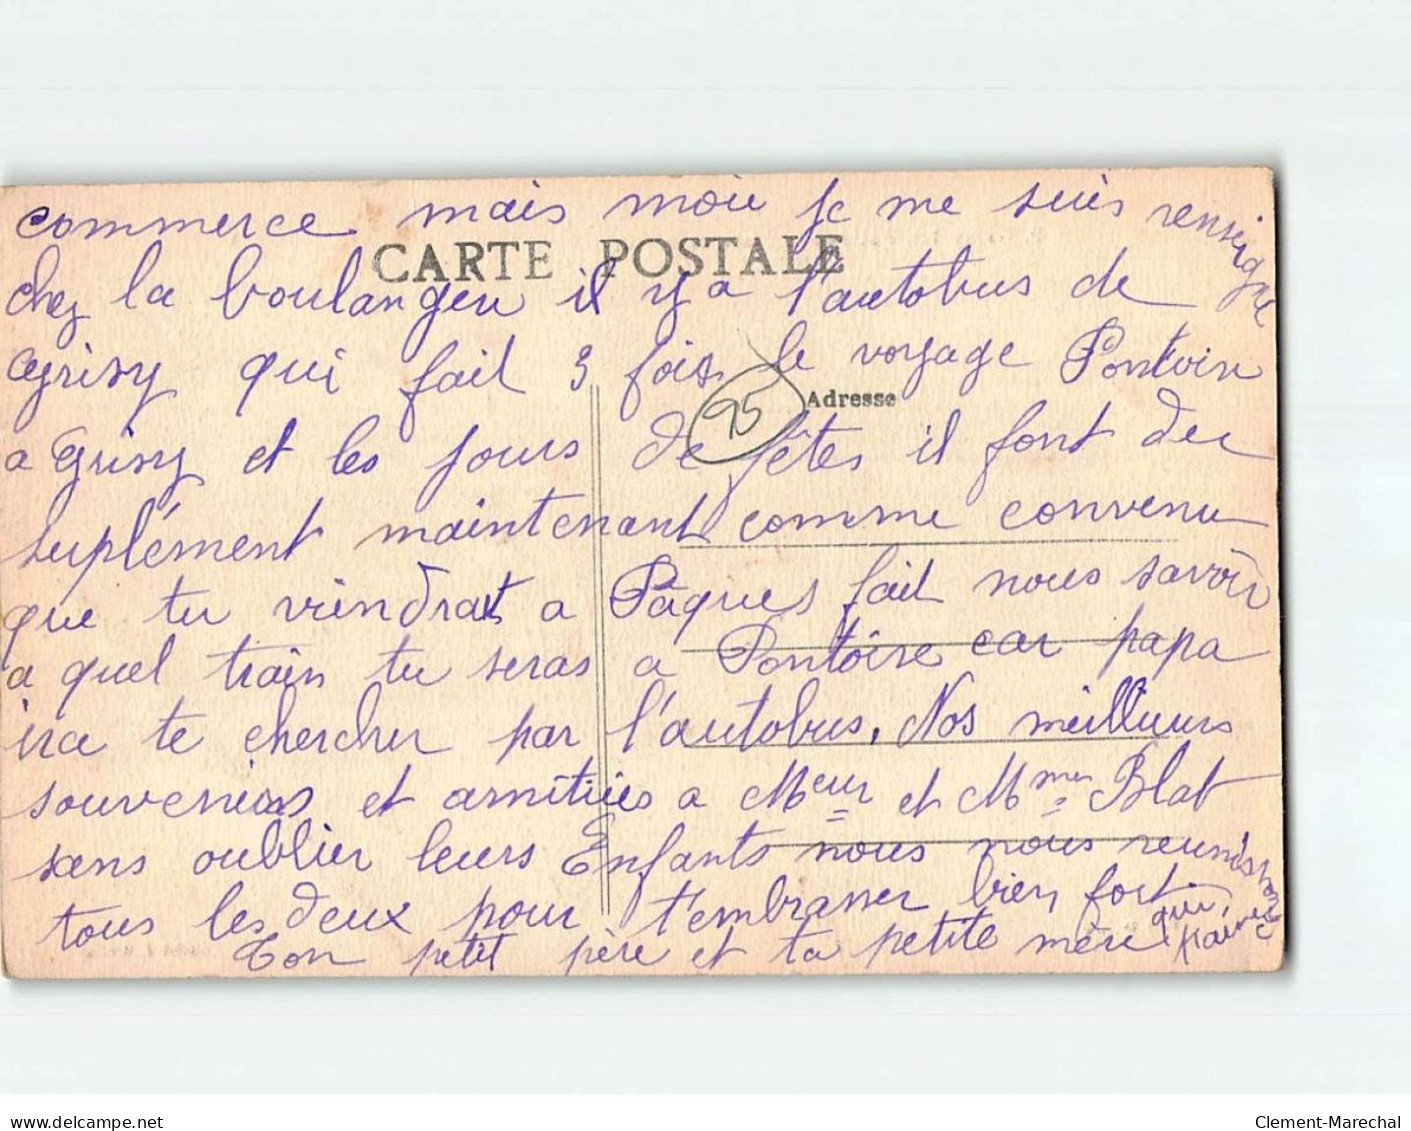 commerce mais moie je me suis renseigné
CARTE POSTALE
chez la boulangeu il y a l'autobus de
Grisy qui fait 3 fois le voyage Pontoin
Adresse
95
a Grisy et les jours de fêtes il font deu
suplément maintenant comme convenu
que tu viendrat a Pâques fait nous savoir
a quel train tu seras a Pontoise car papa
ira te chercher par l'autobus. Nos meilleurs
souvenirs et amitiées a Meur et Mme Blat
sans oublier leurs Enfants nous nous reunissons
tous les deux pour t'embrasser bien fort
Ton petit père et ta petite mère qui t'aime
delcampe.net
Clement-Marechal